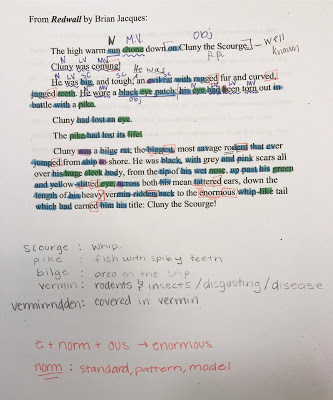 From Redwall by Brian Jacques:
N M.V. Obj
The high warm sun shone down on Cluny the Scourge. - well known
P.P.
N LV MV
Cluny was coming!
N LV SC SC He was
He was big, and tough, an evil rat with ragged fur and curved,
N MV N LV MV
jagged teeth. He wore a black eye patch; his eye had been torn out in
Obj
battle with a pike.
Cluny had lost an eye.
The pike had lost its life!
Cluny was a bilge rat; the biggest, most savage rodent that ever
jumped from ship to shore. He was black, with grey and pink scars all
over his huge sleek body, from the tip of his wet nose, up past his green
and yellow slitted eye, across both his mean tattered ears, down the
length of his heavy vermin-ridden back to the enormous whip-like tail
which had earned him his title: Cluny the Scourge!
scourge : whip.
pike : fish with spiky teeth
bilge : area on the ship
vermin : rodents & insects / disgusting / disease
vermin-ridden: covered in vermin
e + norm + ous → enormous
norm : standard, pattern, model